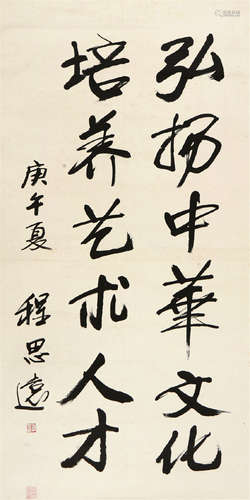 弘扬中華文化
培养艺术人才
庚午夏
程思遠